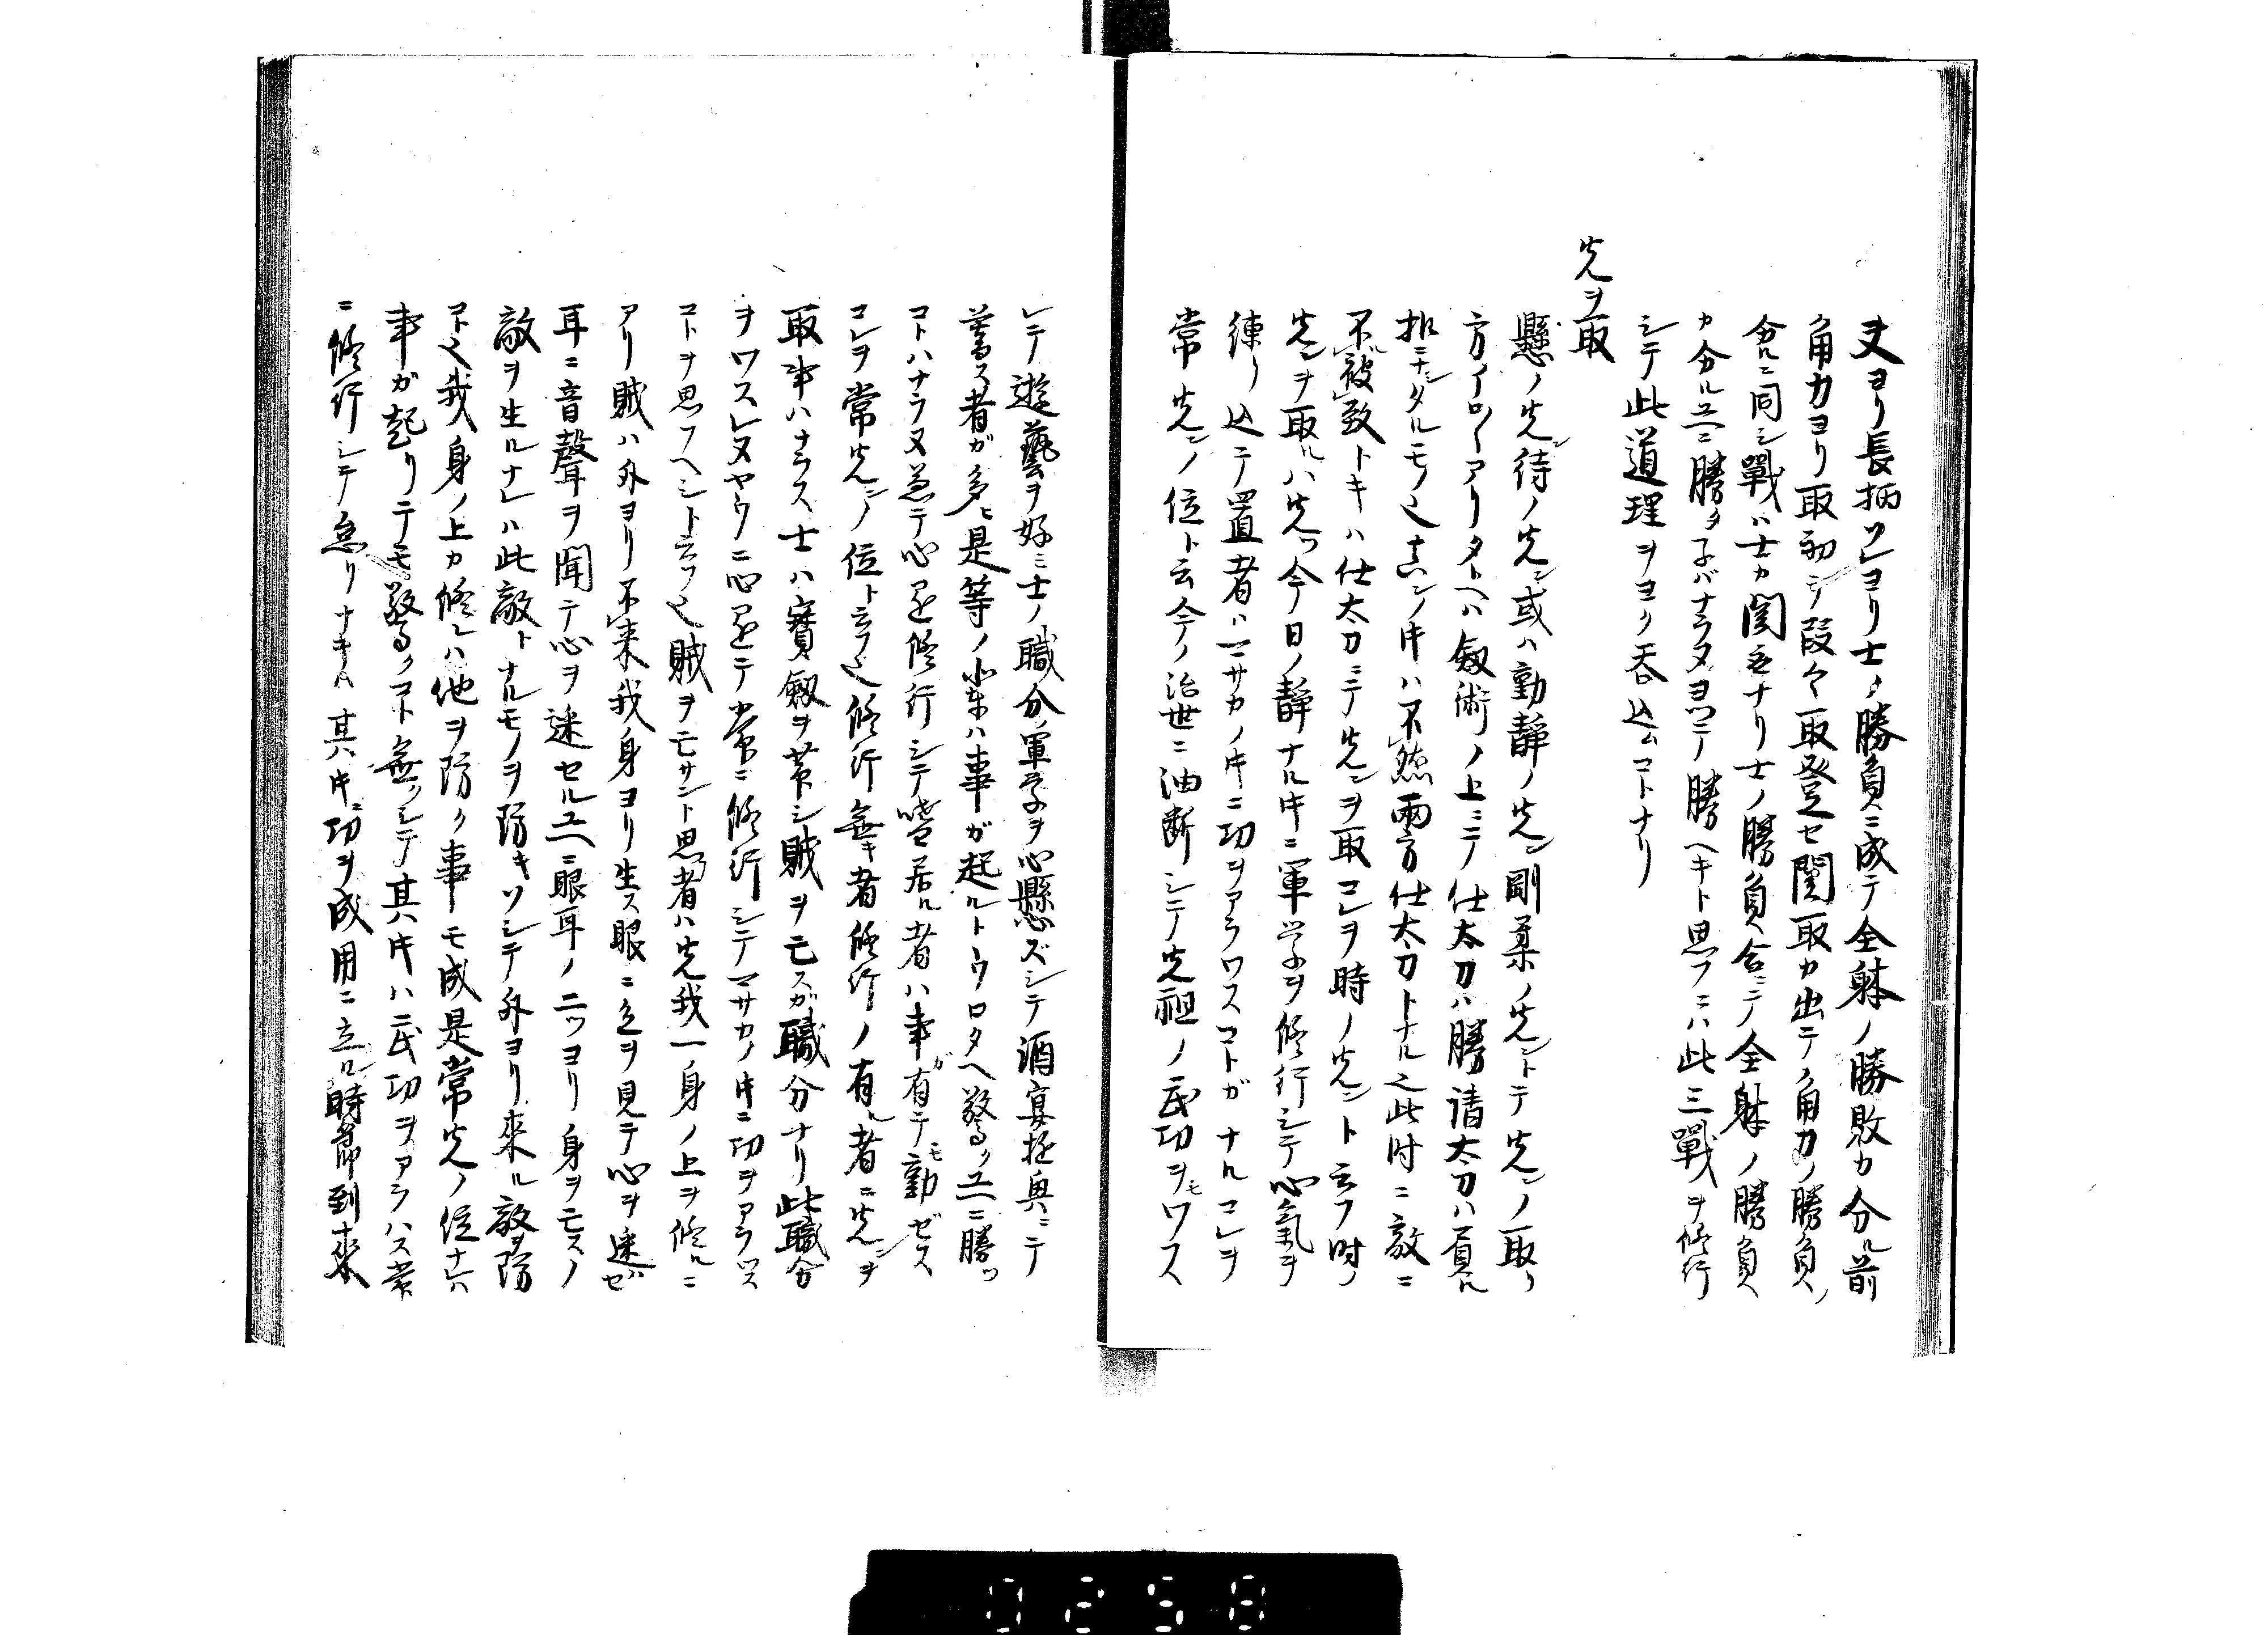 又ヨリ長柄ソレヨリ士ノ勝負ニ成テ全躰ノ勝敗カ分ル前
ノ角力ヨリ取初シ段々取登セ関取カ出テノ角力ノ勝負ノ
分ルニ同シ戰ハ士カ関ナリ士ノ勝負合ニテ全躰ノ勝負
カ分ルユヘニ勝タ子バナラヌヨツテ勝ヘキト思フニハ此三戰ヲ修行
シテ此道理ヲヨク呑込ムコトナリ
先ヲ取
懸ノ先ン待ノ先ン或ハ動静ノ先ン剛柔ノ先ントテ先ンノ取リ
方イロ〱アリタトヘハ劔術ノ上ニテ仕太刀ハ勝請太刀ハ負ル
拵ニナシタルモノ也真ンノ時ハ不然兩方仕太刀トナル也此時ニ敵ニ
不被致トキハ仕太刀ニテ先ンヲ取コレヲ時ノ先ント云フ時ノ
先ンヲ取ルハ先ツ今日ノ静ナル時ニ軍学ヲ修行シテ心氣ヲ
練リ込テ置者ハマサカノ時ニ功ヲアラワスコトガナルコレヲ
常先ンノ位ト云今ノ治世ニ油断シテ先祖ノ武功ヲモワス
レテ遊藝ヲ好ミ士ノ職分ノ軍学ヲ心懸ズシテ酒宴遊興ニテ
暮ス者ガ多シ是等ノ輩ハ事ガ起ルトウロタヘ驚クユヘニ勝ツ
コトハナラヌ兼テ心ヲ修行シテ居ル者ハ事ガ有テモ動ゼス
コレヲ常先ンノ位ト云フ也修行無キ者修行ノ有ル者ニ先ンヲ
取事ハナラス士ハ寳劔ヲ帯シ賊ヲ亡スガ職分ナリ此職分
ヲワスレヌヤウニ心ヲ定テ常ニ修行シテマサカノ時ニ功ヲアラワス
コトヲ思フヘシト云フ也賊ヲ亡サント思フ者ハ先我一身ノ上ヲ修ルニ
アリ賊ハ外ヨリ不来我身ヨリ生ス眼ニ色ヲ見テ心ヲ迷ハセ
耳ニ音聲ヲ聞テ心ヲ迷セルユヘニ眼耳ノ二ツヨリ身ヲ亡スノ
敵ヲ生ルナレハ此敵トナルモノヲ防キソシテ外ヨリ来ル敵ヲ防
コト也我身ノ上カ修レハ他ヲ防ク事モ成是常先ノ位ナレハ
事ガ起リテモ驚クコト無クシテ其時ハ武功ヲアラハス常
ニ修行シテ怠リナキ其時ニ功ヲ成用ニ立ル時節到来
0258